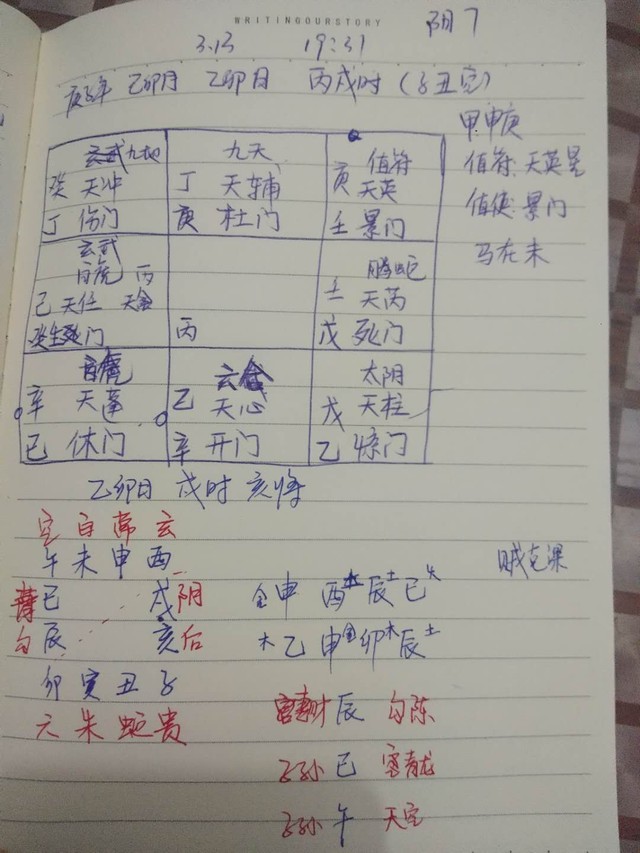 WRITINGOURSTORY
阴7
3.13 19:31
庚子年 己卯月 乙卯日 丙戌时 (子丑空)
甲申庚
值符:天英星
值使:景门
马在未
九地
癸 天冲
丁 伤门
九天
丁 天辅
庚 杜门
值符
庚 天英
壬 景门
玄武
白虎 丙
己 天任 天禽
癸生门
丙
腾蛇
壬 天芮
戊 死门
辛 天蓬
己 休门
六合
乙 天心
辛 开门
太阴
戊 天柱
乙 惊门
乙卯日 戌时 亥将
空 白 常 玄
午 未 申 酉
贼克课
青 巳 戌 阴
勾 辰 亥 后
卯 寅 丑 子
六 朱 蛇 贵
金申 酉金 辰土 巳火
木乙 申金 卯木 辰土
妻财 辰 勾陈
子孙 巳 青龙
子孙 午 天空